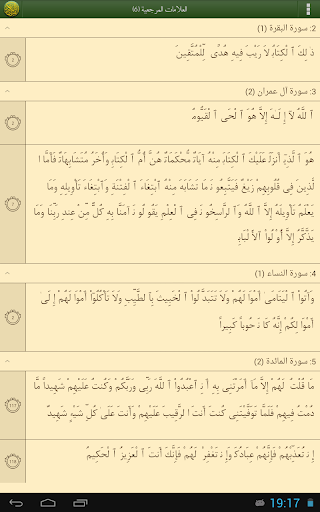 العلامات المرجعية (6)
2: سورة البقرة (1)
ذَٰلِكَ ٱلْكِتَابُ لَا رَيْبَ فِيهِ هُدًى لِّلْمُتَّقِينَ
2
3: سورة آل عمران (2)
ٱللَّهُ لَا إِلَـٰهَ إِلَّا هُوَ ٱلْحَىُّ ٱلْقَيُّومُ
2
هُوَ ٱلَّذِىٓ أَنزَلَ عَلَيْكَ ٱلْكِتَابَ مِنْهُ آيَاتٌ مُّحْكَمَاتٌ هُنَّ أُمُّ ٱلْكِتَابِ وَأُخَرُ مُتَشَابِهَاتٌ فَأَمَّا ا
لَّذِينَ فى قُلُوبِهِمْ زَيْغٌ فَيَتَّبِعُونَ مَا تَشَابَهَ مِنْهُ ٱبْتِغَاءَ ٱلْفِتْنَةِ وَٱبْتِغَاءَ تَأْوِيلِهِ وَمَا
يَعْلَمُ تَأْوِيلَهُ إِلَّا ٱللَّهُ وَٱلرَّاسِخُونَ فِى ٱلْعِلْمِ يَقُولُونَ آمَنَّا بِهِ كُلٌّ مِّنْ عِندِ رَبِّنَا وَمَا
يَذَّكَّرُ إِلَّا أُوْلُواْ ٱلْأَلْبَابِ
7
4: سورة النساء (1)
وَآتُواْ ٱلْيَتَامَىٰ أَمْوَالَهُمْ وَلَا تَتَبَدَّلُواْ ٱلْخَبِيثَ بِٱلطَّيِّبِ وَلَا تَأْكُلُوٓاْ أَمْوَالَهُمْ إِلَىٰ
أَمْوَالِكُمْ إِنَّهُ كَانَ حُوباً كَبِيراً
2
5: سورة المائدة (2)
مَا قُلْتُ لَهُمْ إِلَّا مَآ أَمَرْتَنِى بِهِ أَنِ ٱعْبُدُواْ ٱللَّهَ رَبِّى وَرَبَّكُمْ وَكُنتُ عَلَيْهِمْ شَهِيداً مَّا
دُمْتُ فِيهِمْ فَلَمَّا تَوَفَّيْتَنِى كُنتَ أَنتَ ٱلرَّقِيبَ عَلَيْهِمْ وَأَنتَ عَلَىٰ كُلِّ شَىْءٍ شَهِيدٌ
117
إِن تُعَذِّبْهُمْ فَإِنَّهُمْ عِبَادُكَ وَإِن تَغْفِرْ لَهُمْ فَإِنَّكَ أَنتَ ٱلْعَزِيزُ ٱلْحَكِيمُ
118
19:17